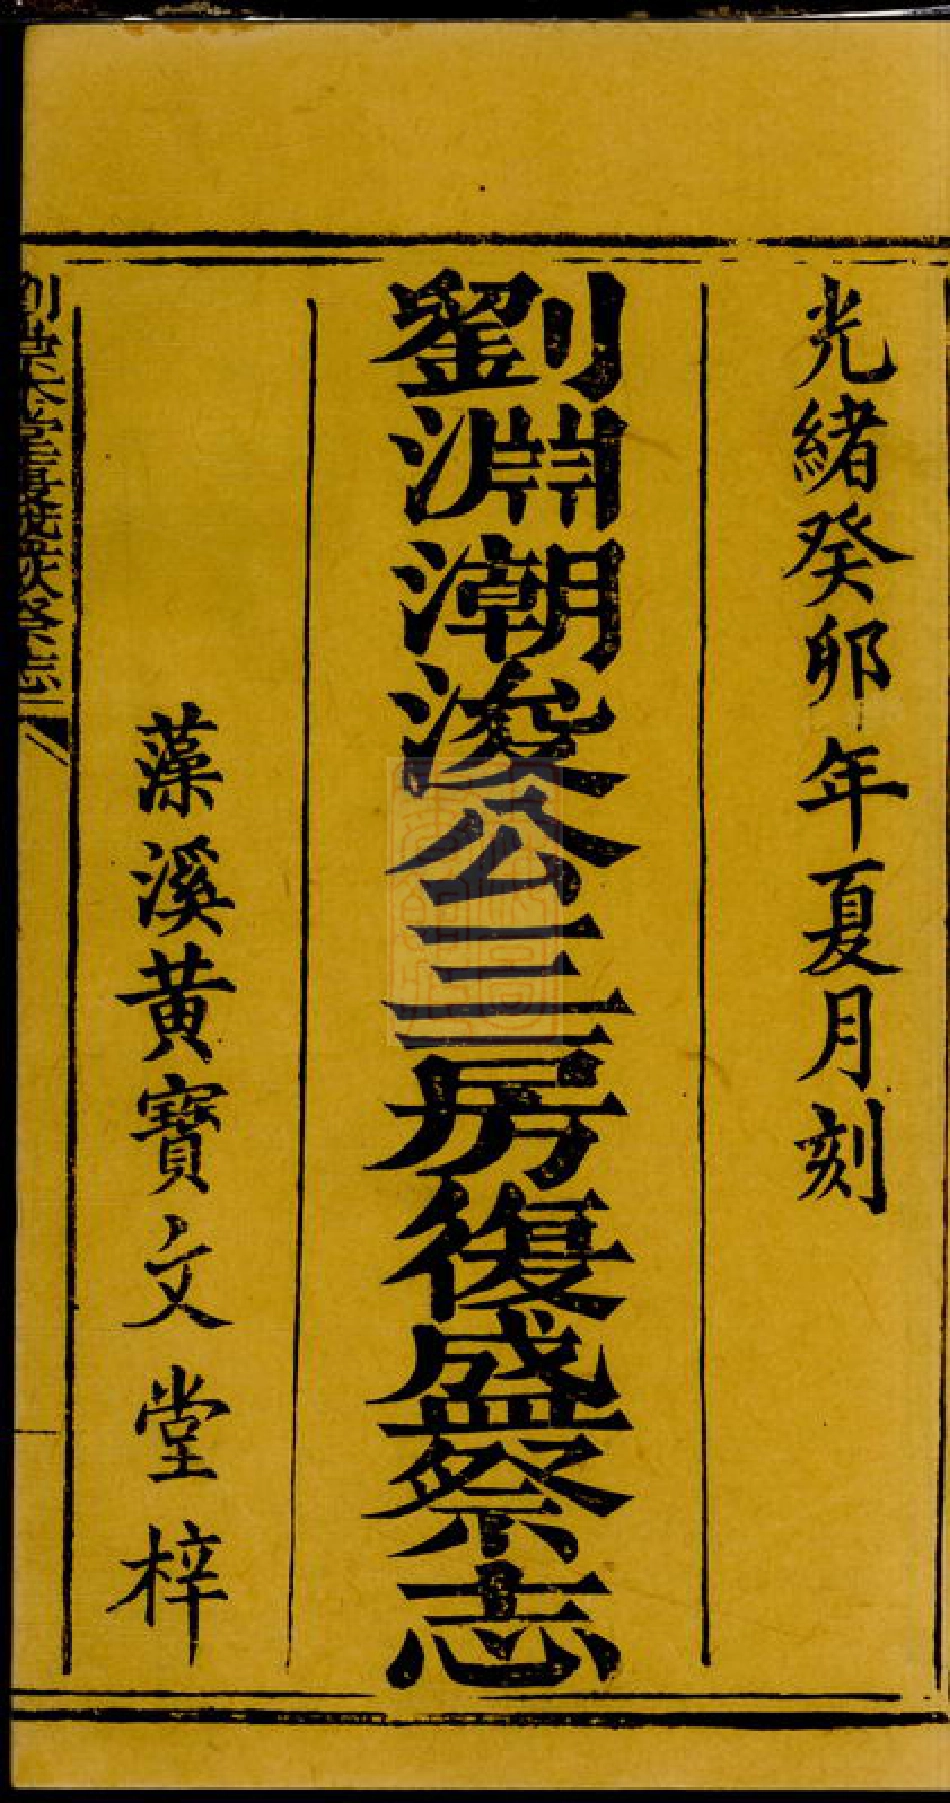 光緒癸卯年夏月刻
劉淵潮浚公三房復盛祭志
藻溪黃寶文堂梓